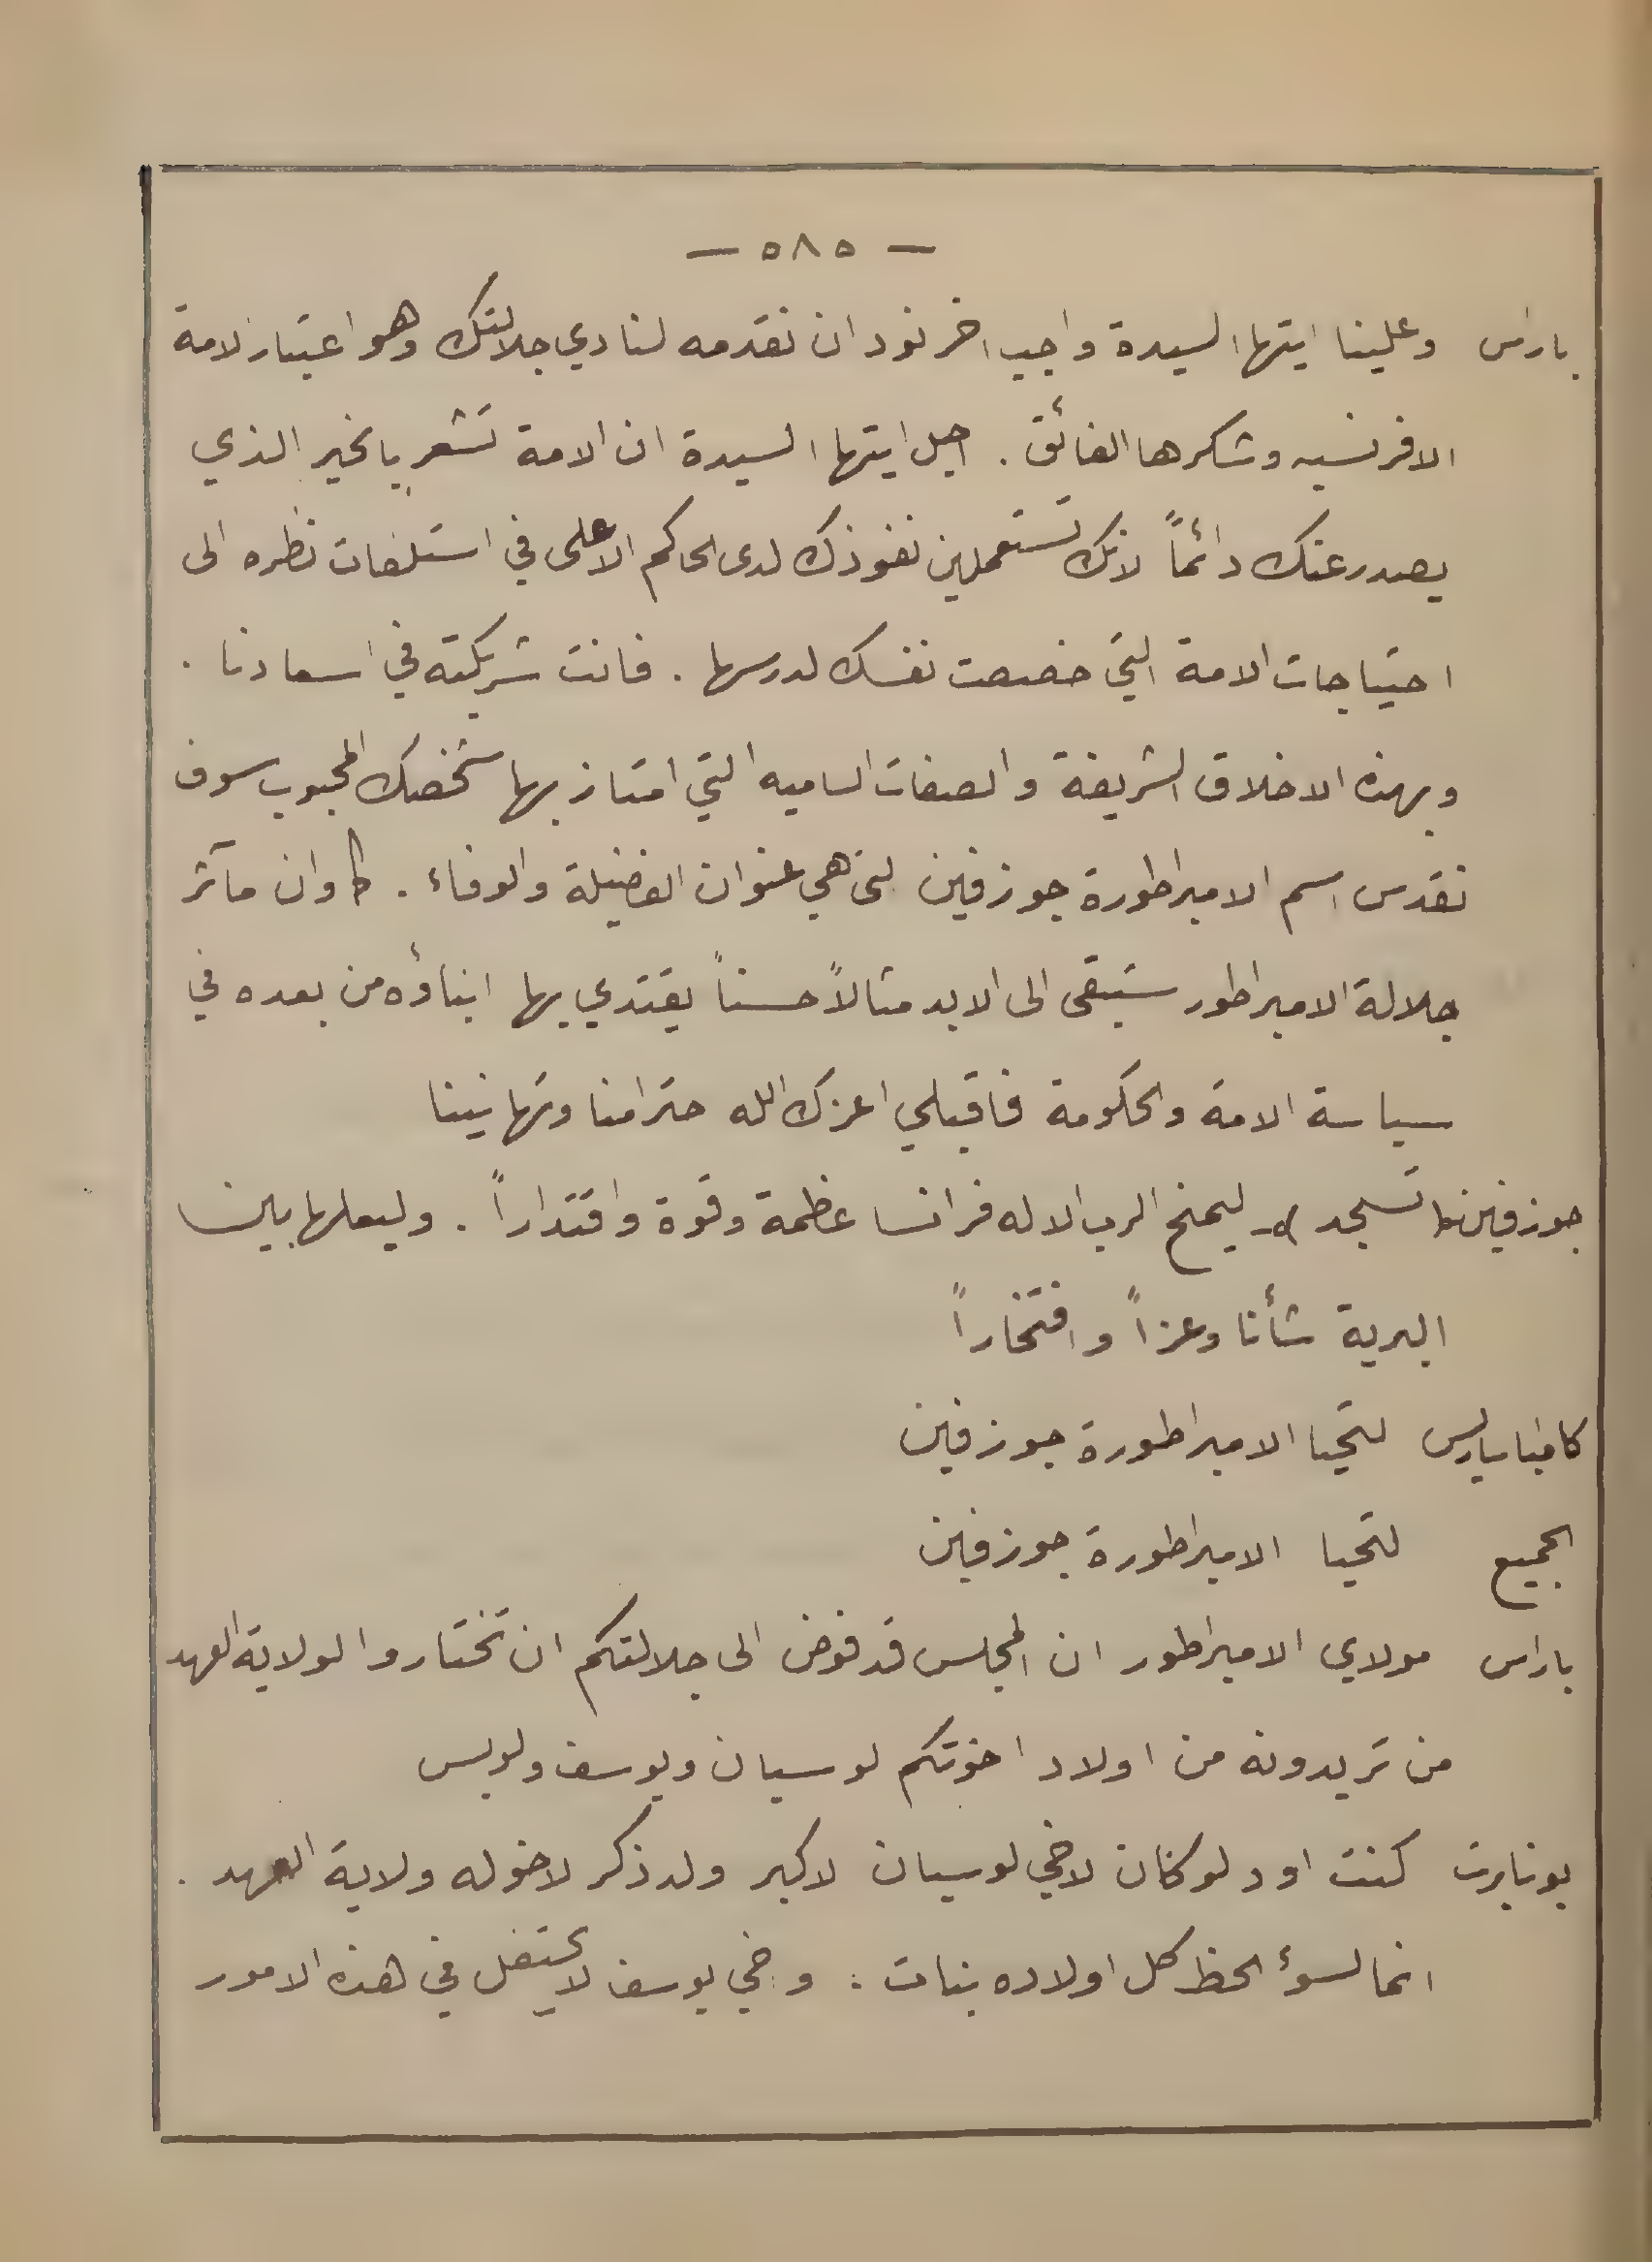 — ٥٨٥ —
باراس وعلينا ايتها السيدة واجب اخر نود ان نقدمه لنادي جلالتك وهو اعتبار الامة
الافرنسيه وشكرها الفائق . اجل ايتها السيدة ان الامة تشعر بالخير الذي
يصدر عنك دائماً لانك تستعملين نفوذك لدى الحاكم الاعلى في استلفات نظره الى
احتياجات الامة التي خصصت نفسك لدرسها . فانت شريكته في اسعادنا .
وبهذه الاخلاق الشريفة والصفات الساميه التي امتاز بها شخصك المحبوب سوف
نقدس اسم الامبراطورة جوزفين التي هي عنوان الفضيلة والوفاء . كما وان مآثر
جلالة الامبراطور ستبقى الى الابد مثالاً حسناً يقتدي بها ابناؤه من بعده في
سياسة الامة والحكومة فاقبلي اعزك الله احترامنا وتهانينا
جوزفين تسجد ليمنح الرب الاله فرانسا عظمة وقوة واقتداراً . وليعلها بين
البرية شأنا وعزاً وافتخاراً
كامباسارلس لتحيا الامبراطورة جوزفين
الجميع لتحيا الامبراطورة جوزفين
باراس مولاي الامبراطور ان المجلس قد فوض الى جلالتكم ان تختاروا لولاية العهد
من تريدونه من اولاد اخوتكم لوسيان ويوسف ولويس
بونابرت كنت اود لو كان لاخي لوسيان الاكبر ولد ذكر لاخوله ولاية العهد .
انما لسؤ الحظ كل اولاده بنات . واخي يوسف لا يحتفل في هذه الامور